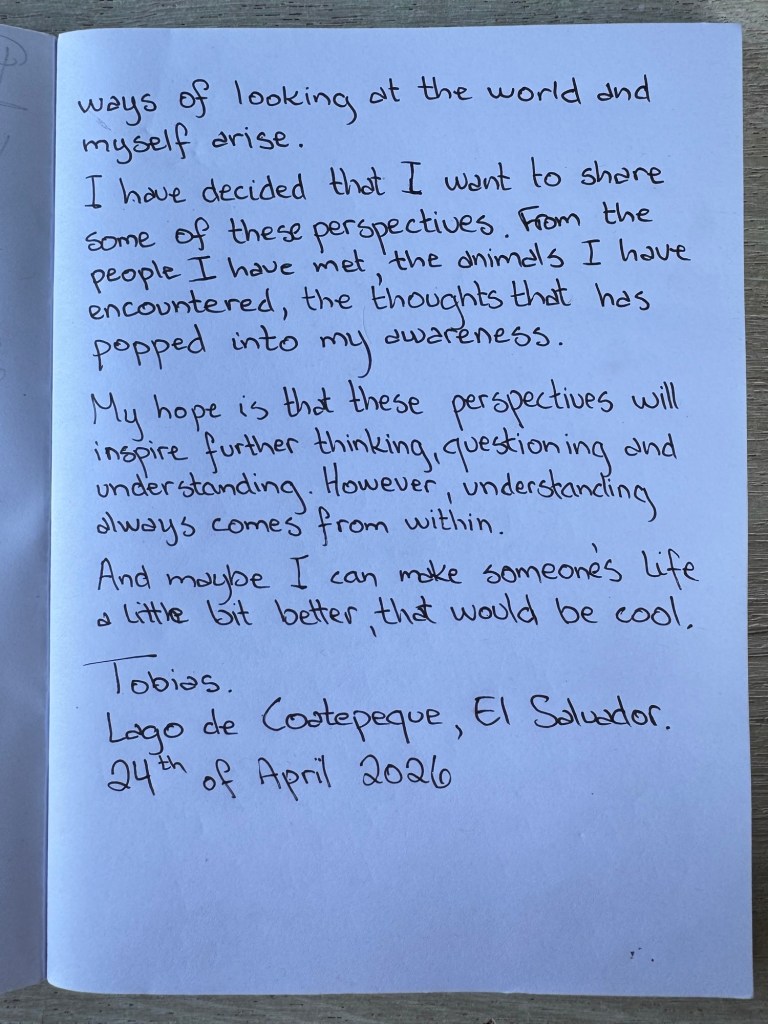 ways of looking at the world and
myself arise.
I have decided that I want to share
some of these perspectives. From the
people I have met, the animals I have
encountered, the thoughts that has
popped into my awareness.
My hope is that these perspectives will
inspire further thinking, questioning and
understanding. However, understanding
always comes from within.
And maybe I can make someone's life
a little bit better, that would be cool.
Tobias.
Lago de Coatepeque, El Salvador.
24th of April 2026